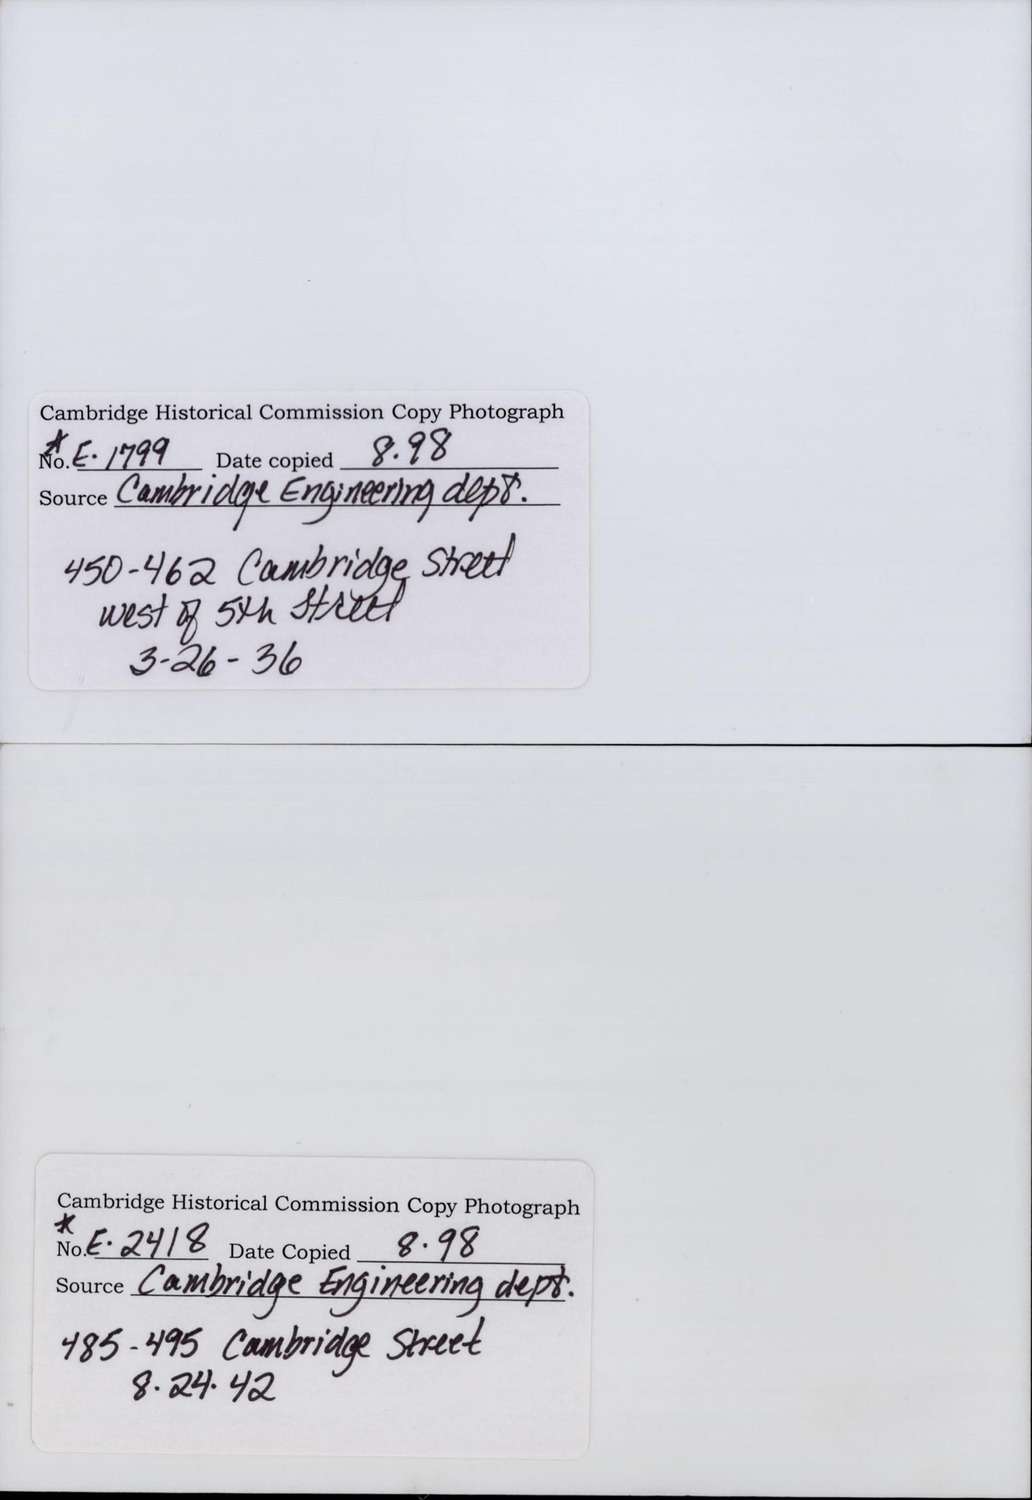 Cambridge Historical Commission Copy Photograph
* No. E. 1799 Date copied 8.98
Source Cambridge Engineering dept.
450-462 Cambridge Street
west of 5th Street
3-26-36
Cambridge Historical Commission Copy Photograph
* No. E. 2418 Date Copied 8.98
Source Cambridge Engineering dept.
485-495 Cambridge Street
8.24.42